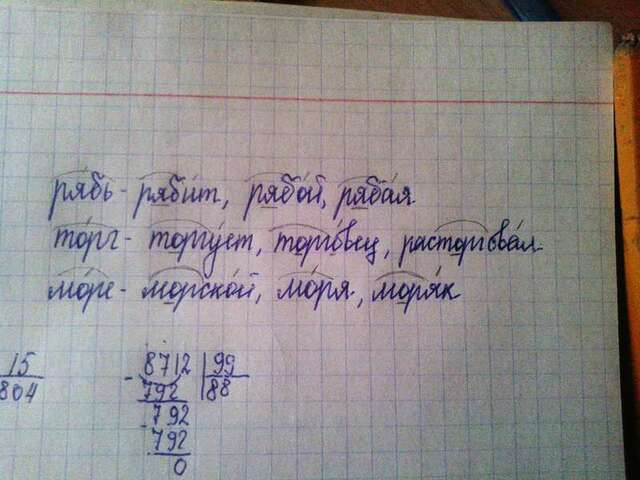 рябь - рябит, рябой, рябая
торг - торгует, торговец, расторговал
море - морской, моря, моряк
15
804
8712 | 99
- 792 | 88
- 792
792
0